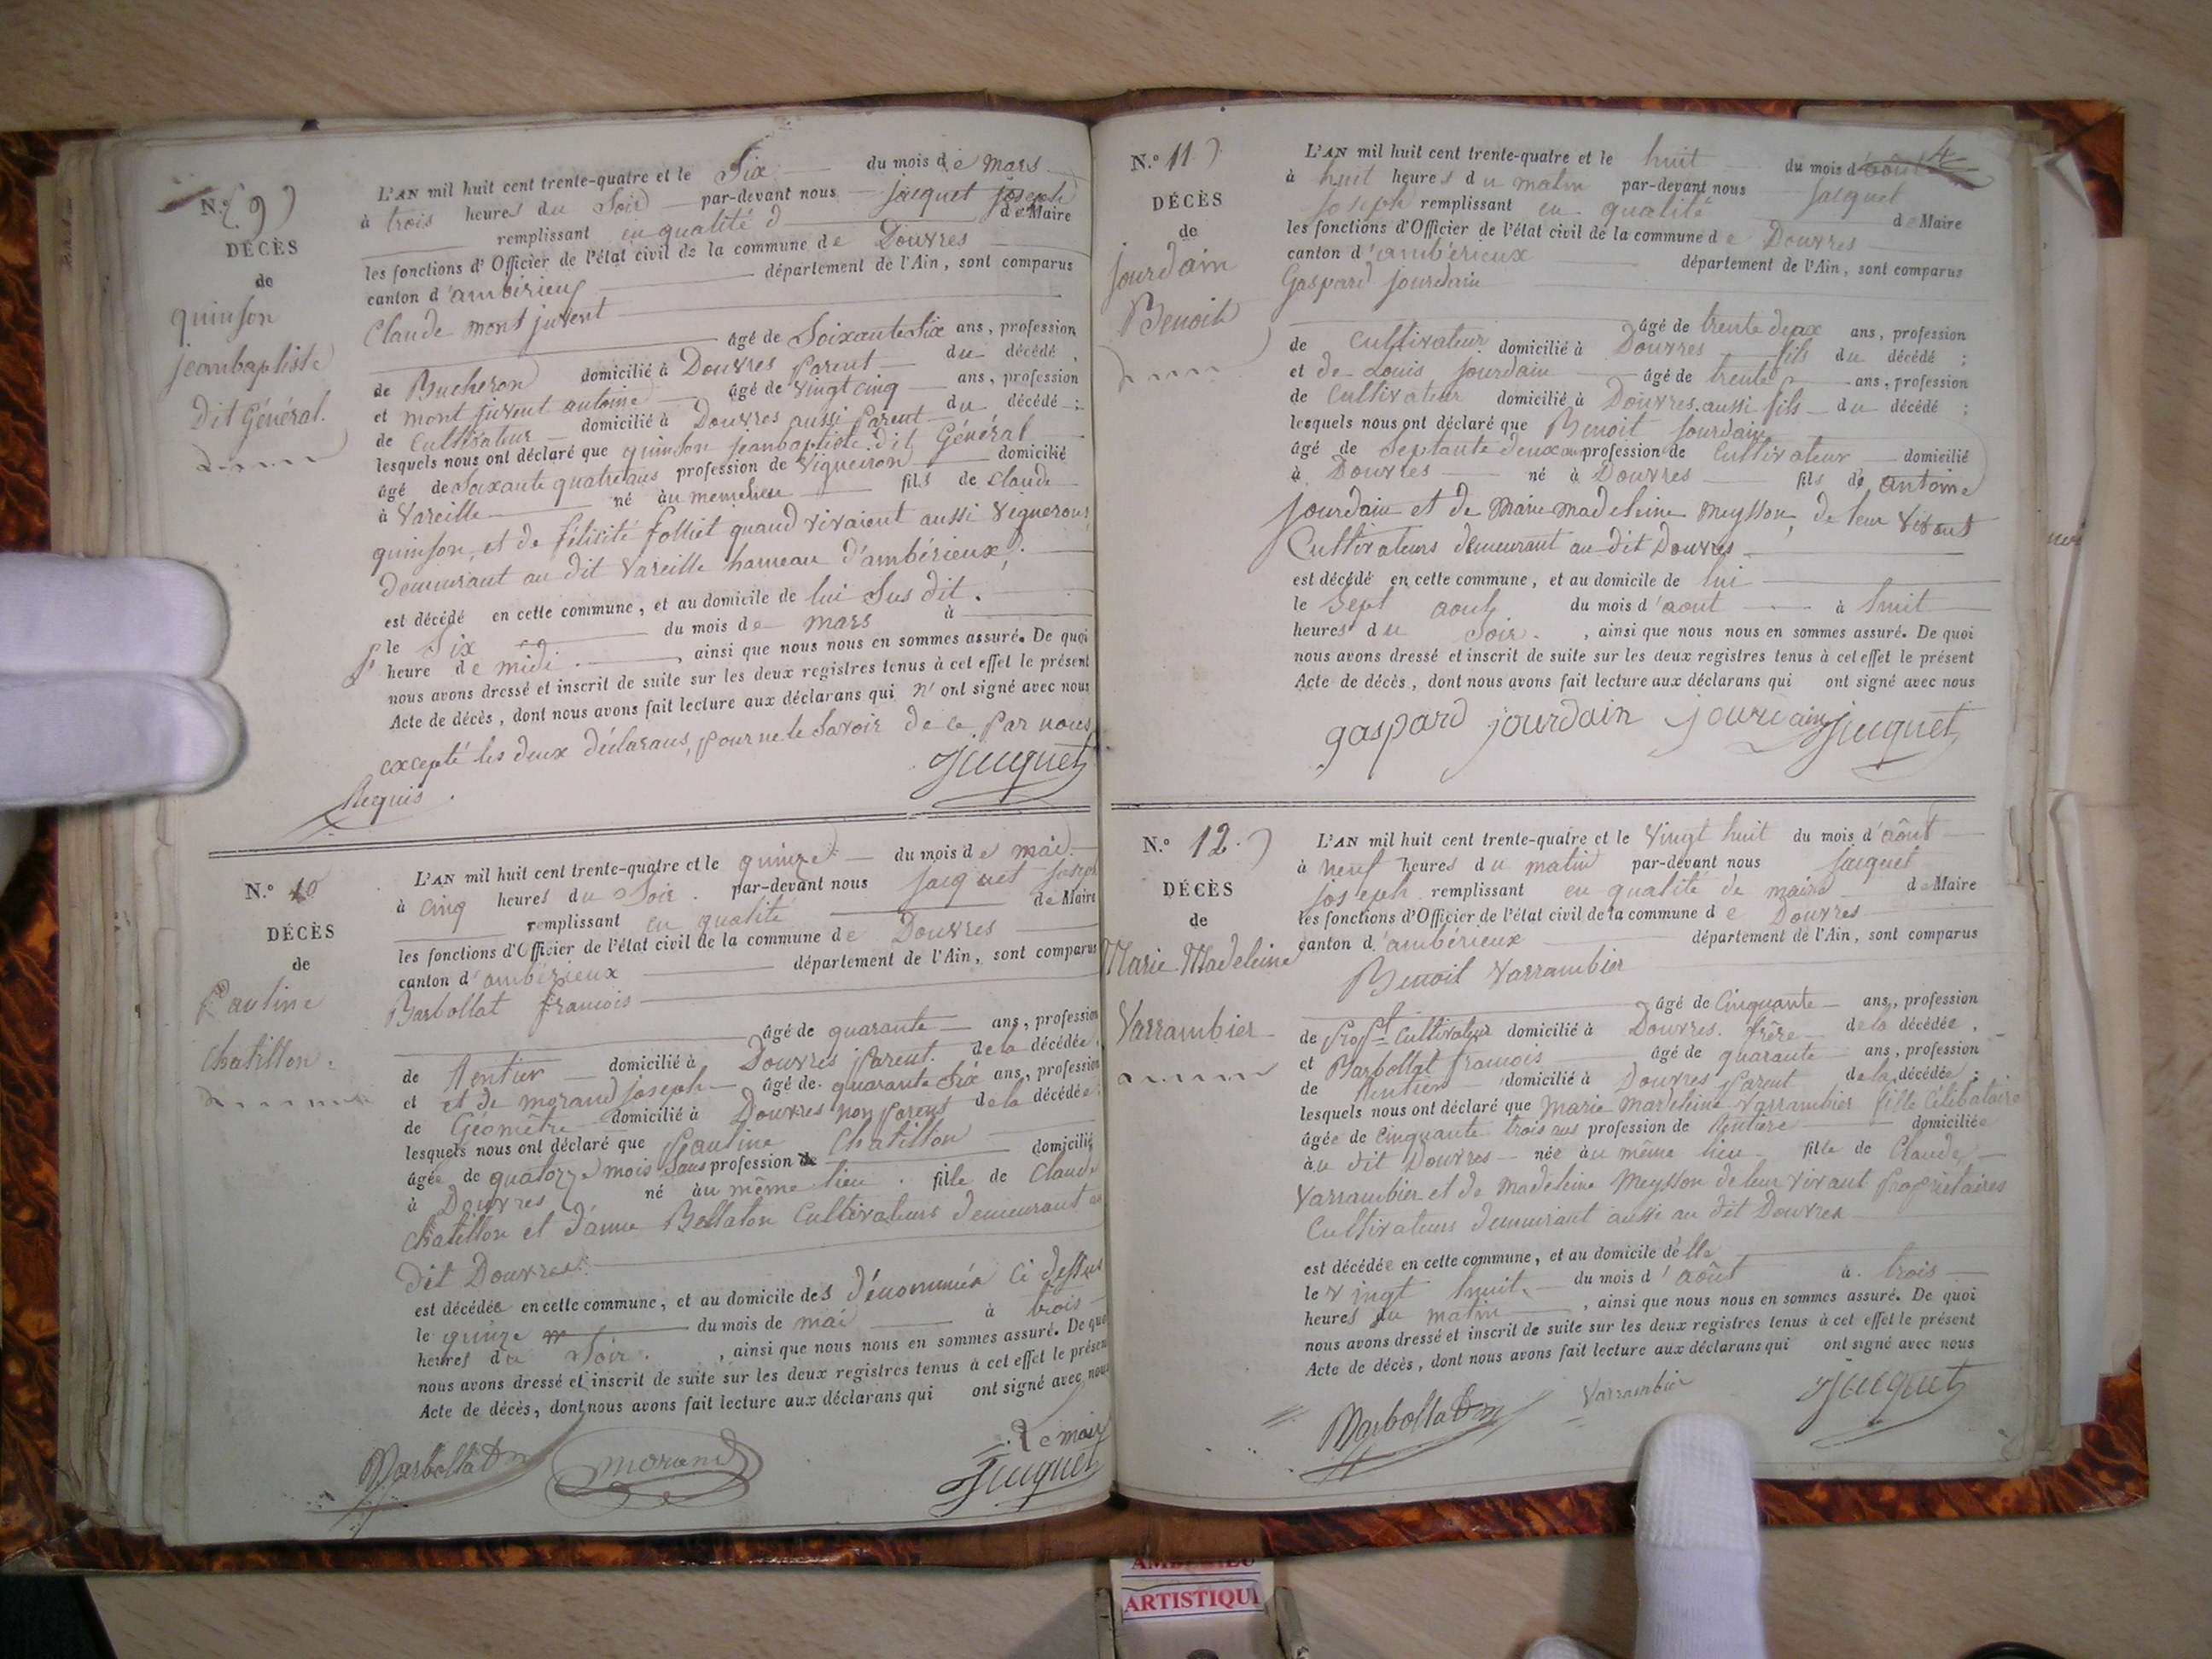 N.º 9
DÉCÈS
de
quinson
jeanbaptiste
dit Général.
L'AN mil huit cent trente-quatre et le Six du mois de Mars
à trois heures du Soir par-devant nous jacquet joseph
remplissant en qualité d de Maire
les fonctions d'Officier de l'état civil de la commune de Douvres
canton d'ambérieux département de l'Ain, sont comparus
Claude montjuvent
âgé de Soixante Six ans, profession
de Bucheron domicilié à Douvres parent du décédé,
et montjuvent antoine âgé de vingt cinq ans, profession
de Cultivateur domicilié à Douvres aussi parent du décédé ;
lesquels nous ont déclaré que quinson jeanbaptiste dit Général
âgé de Soixante quatre ans profession de Vigneron domicilié
à Vareille né au meme lieu fils de Claude
quinson, et de félicité folliet quand vivaient aussi Vignerons
demeurant au dit Vareille hameau d'ambérieux.
est décédé en cette commune, et au domicile de lui Sus dit.
le Six du mois de mars à
heure de midi. , ainsi que nous nous en sommes assuré. De quoi
nous avons dressé et inscrit de suite sur les deux registres tenus à cet effet le présent
Acte de décès, dont nous avons fait lecture aux déclarans qui n'ont signé avec nous
excepté les deux déclarans, pour ne le Savoir de ce par nous
Requis.
Jacquet
N.º 10
DÉCÈS
de
Pauline
Chatillon.
L'AN mil huit cent trente-quatre et le quinze du mois de mai
à cinq heures du Soir. par-devant nous Jacquet Joseph
remplissant en qualité de Maire
les fonctions d'Officier de l'état civil de la commune de Douvres
canton d'ambérieux département de l'Ain, sont comparus
Barbollat françois
âgé de quarante ans, profession
de Rentier domicilié à Douvres parent. de la décédée,
et et de morand joseph âgé de quarante Six ans, profession
de Géomètre domicilié à Douvres non parens de la décédée ;
lesquels nous ont déclaré que Pauline Chatillon
âgée de quatorze mois Sans profession de domicilié
à Douvres né au même lieu. fille de Claude
Chatillon et d'anne Bellaton Cultivateurs demeurant au
dit Douvres.
est décédée en cette commune, et au domicile des dénommés Ci dessus
le quinze du mois de mai à trois
heures du Soir. , ainsi que nous nous en sommes assuré. De quoi
nous avons dressé et inscrit de suite sur les deux registres tenus à cet effet le présent
Acte de décès, dont nous avons fait lecture aux déclarans qui ont signé avec nous
Le maire
Barbollat morand Jacquet
N.º 11
DÉCÈS
de
jourdain
Benoit
4
L'AN mil huit cent trente-quatre et le huit du mois d'août
à huit heures du matin par-devant nous jacquet
joseph remplissant en qualité de Maire
les fonctions d'Officier de l'état civil de la commune de Douvres
canton d'ambérieux département de l'Ain, sont comparus
Gaspard jourdain
âgé de trente deux ans, profession
de Cultivateur domicilié à Douvres fils du décédé ;
et de Louis jourdain âgé de trente ans, profession
de Cultivateur domicilié à Douvres. aussi fils du décédé ;
lesquels nous ont déclaré que Benoit jourdain
âgé de Septante deux ans profession de Cultivateur domicilié
à Douvres né à Douvres fils de antoine
jourdain et de Marie madeleine Meysson, de leur Vivant
Cultivateurs demeurant au dit Douvres
est décédé en cette commune, et au domicile de lui
le Sept août du mois d'aout à huit
heures du Soir. , ainsi que nous nous en sommes assuré. De quoi
nous avons dressé et inscrit de suite sur les deux registres tenus à cet effet le présent
Acte de décès, dont nous avons fait lecture aux déclarans qui ont signé avec nous
gaspard jourdain jourdain Jacquet
N.º 12.
DÉCÈS
de
Marie Madeleine
Varrambier
L'AN mil huit cent trente-quatre et le Vingt huit du mois d'août
à neuf heures du matin par-devant nous Jacquet
joseph remplissant en qualité de maire de Maire
les fonctions d'Officier de l'état civil de la commune de Douvres
canton d'ambérieux département de l'Ain, sont comparus
Benoit Varrambier
âgé de Cinquante ans, profession
de Cultivateur domicilié à Douvres. frère de la décédée,
et Barbollat françois âgé de quarante ans, profession
de Rentier domicilié à Douvres Parent de la décédée ;
lesquels nous ont déclaré que Marie Madeleine Varrambier fille Célibataire
âgée de Cinquante trois ans profession de Rentière domiciliée
au dit Douvres née au même lieu fille de Claude
Varrambier et de Madeleine Meysson de leur vivant propriétaires
Cultivateurs demeurant aussi au dit Douvres
est décédée en cette commune, et au domicile d'elle
le vingt huit du mois d'août à trois
heures du matin , ainsi que nous nous en sommes assuré. De quoi
nous avons dressé et inscrit de suite sur les deux registres tenus à cet effet le présent
Acte de décès, dont nous avons fait lecture aux déclarans qui ont signé avec nous
Barbollat Varrambier Jacquet
ARTISTIQU